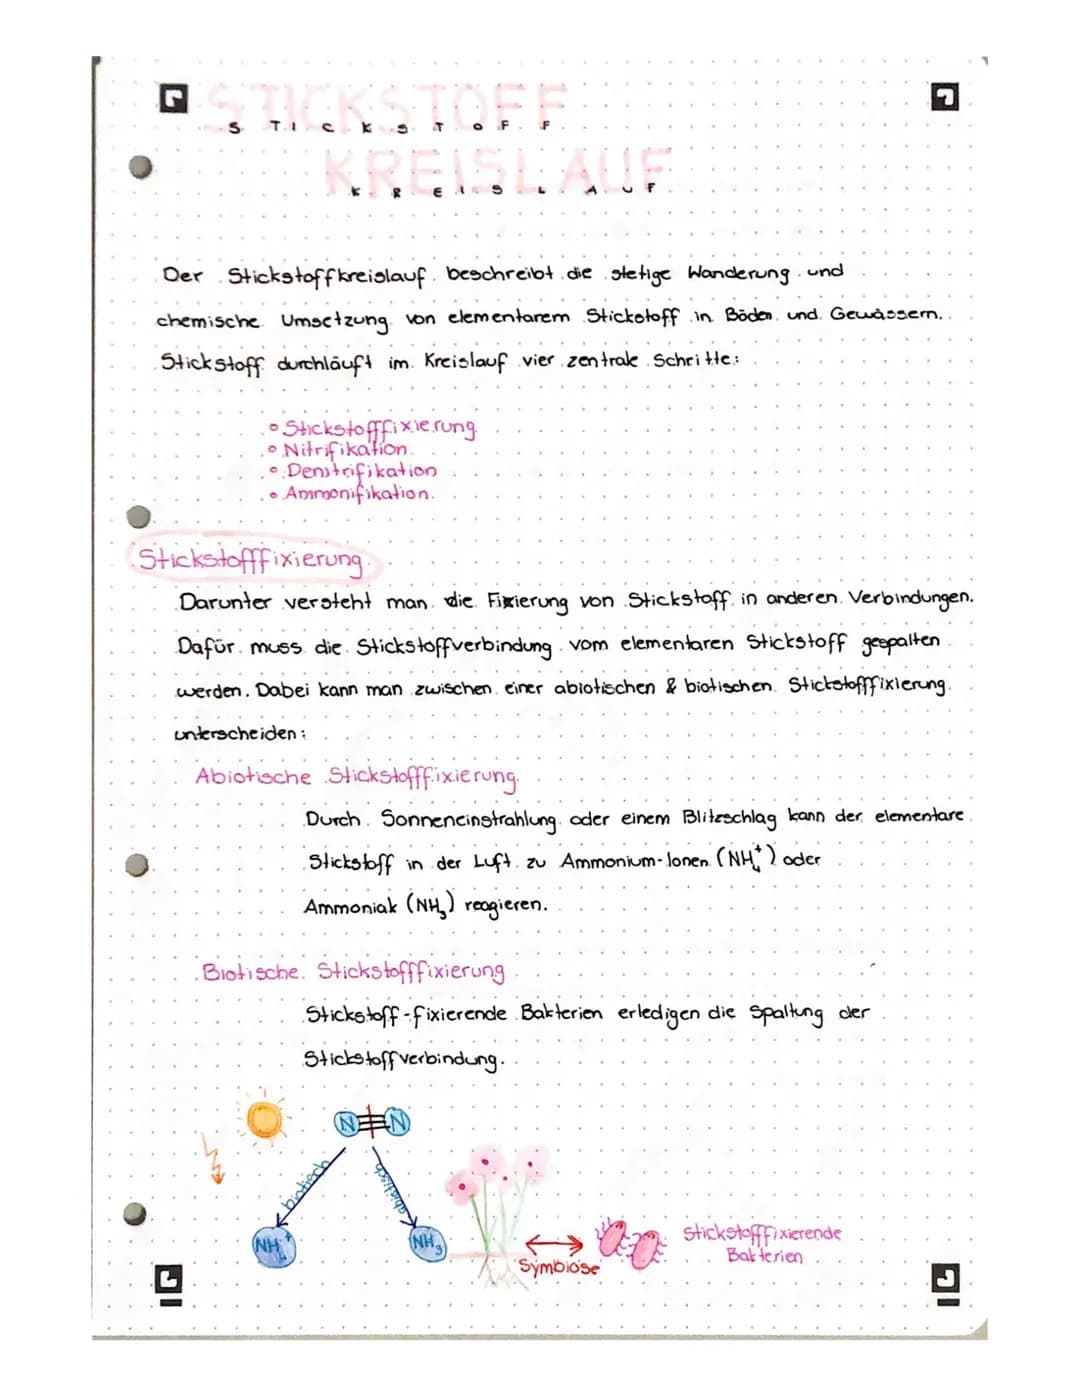 STICKSTOFF
STICKSTOFF
KREISLAUF
KREISLAUF
Der Stickstoffkreislauf beschreibt die stetige Wanderung und
chemische Umsetzung von elementarem Stickstoff in Böden und Gewässern.
Stickstoff durchläuft im Kreislauf vier zentrale Schritte:
• Stickstofffixierung
• Nitrifikation
• Denitrifikation
• Ammonifikation
Stickstofffixierung
Darunter versteht man die Fixierung von Stickstoff in anderen Verbindungen.
Dafür muss die Stickstoffverbindung vom elementaren Stickstoff gespalten
werden. Dabei kann man zwischen einer abiotischen & biotischen Stickstofffixierung
unterscheiden:
Abiotische Stickstofffixierung
Durch Sonneneinstrahlung oder einem Blitzschlag kann der elementare
Stickstoff in der Luft zu Ammonium-Ionen (NH₄⁺) oder
Ammoniak (NH₃) reagieren.
Biotische Stickstofffixierung
Stickstoff-fixierende Bakterien erledigen die Spaltung der
Stickstoffverbindung.
N≡N
biotisch
abiotisch
NH₄⁺
NH₃
Symbiose
Stickstofffixierende
Bakterien